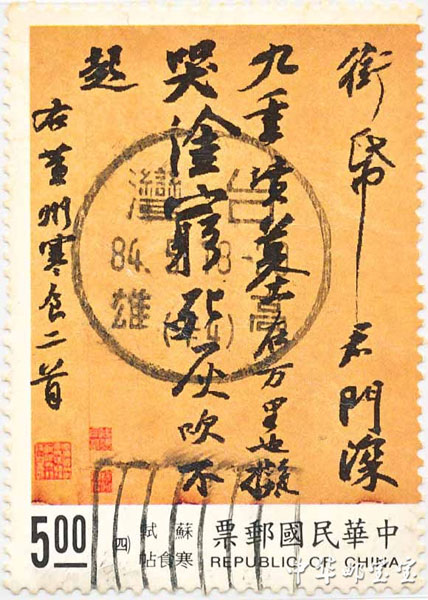 銜帋君門深
九重墳墓在万里也擬
哭塗窮死灰吹不
起
右黃州寒食二首
台灣
84.
高雄
5.00
蘇軾
寒食帖
(四)
中華民國郵票
REPUBLIC OF CHINA